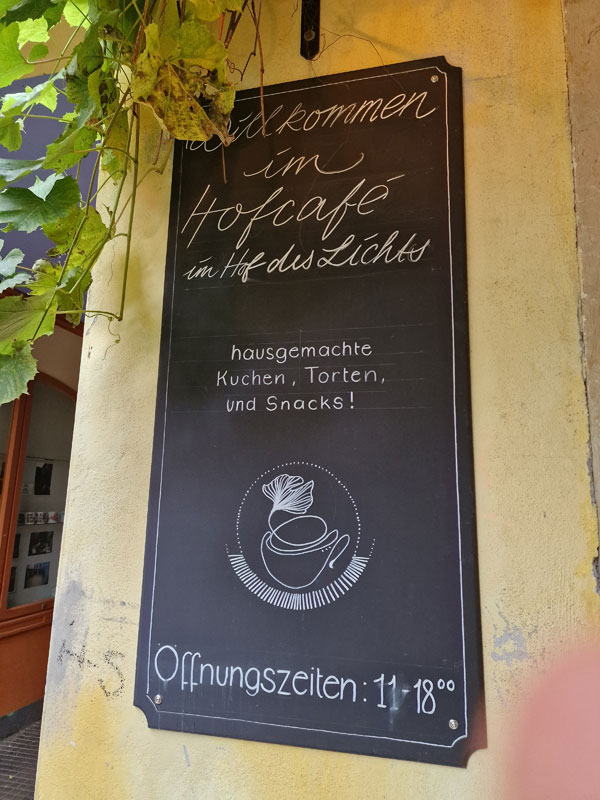 Willkommen
im
Hofcafé
im Hof des Lichts
hausgemachte
Kuchen, Torten,
und Snacks!
Öffnungszeiten: 11-18°°